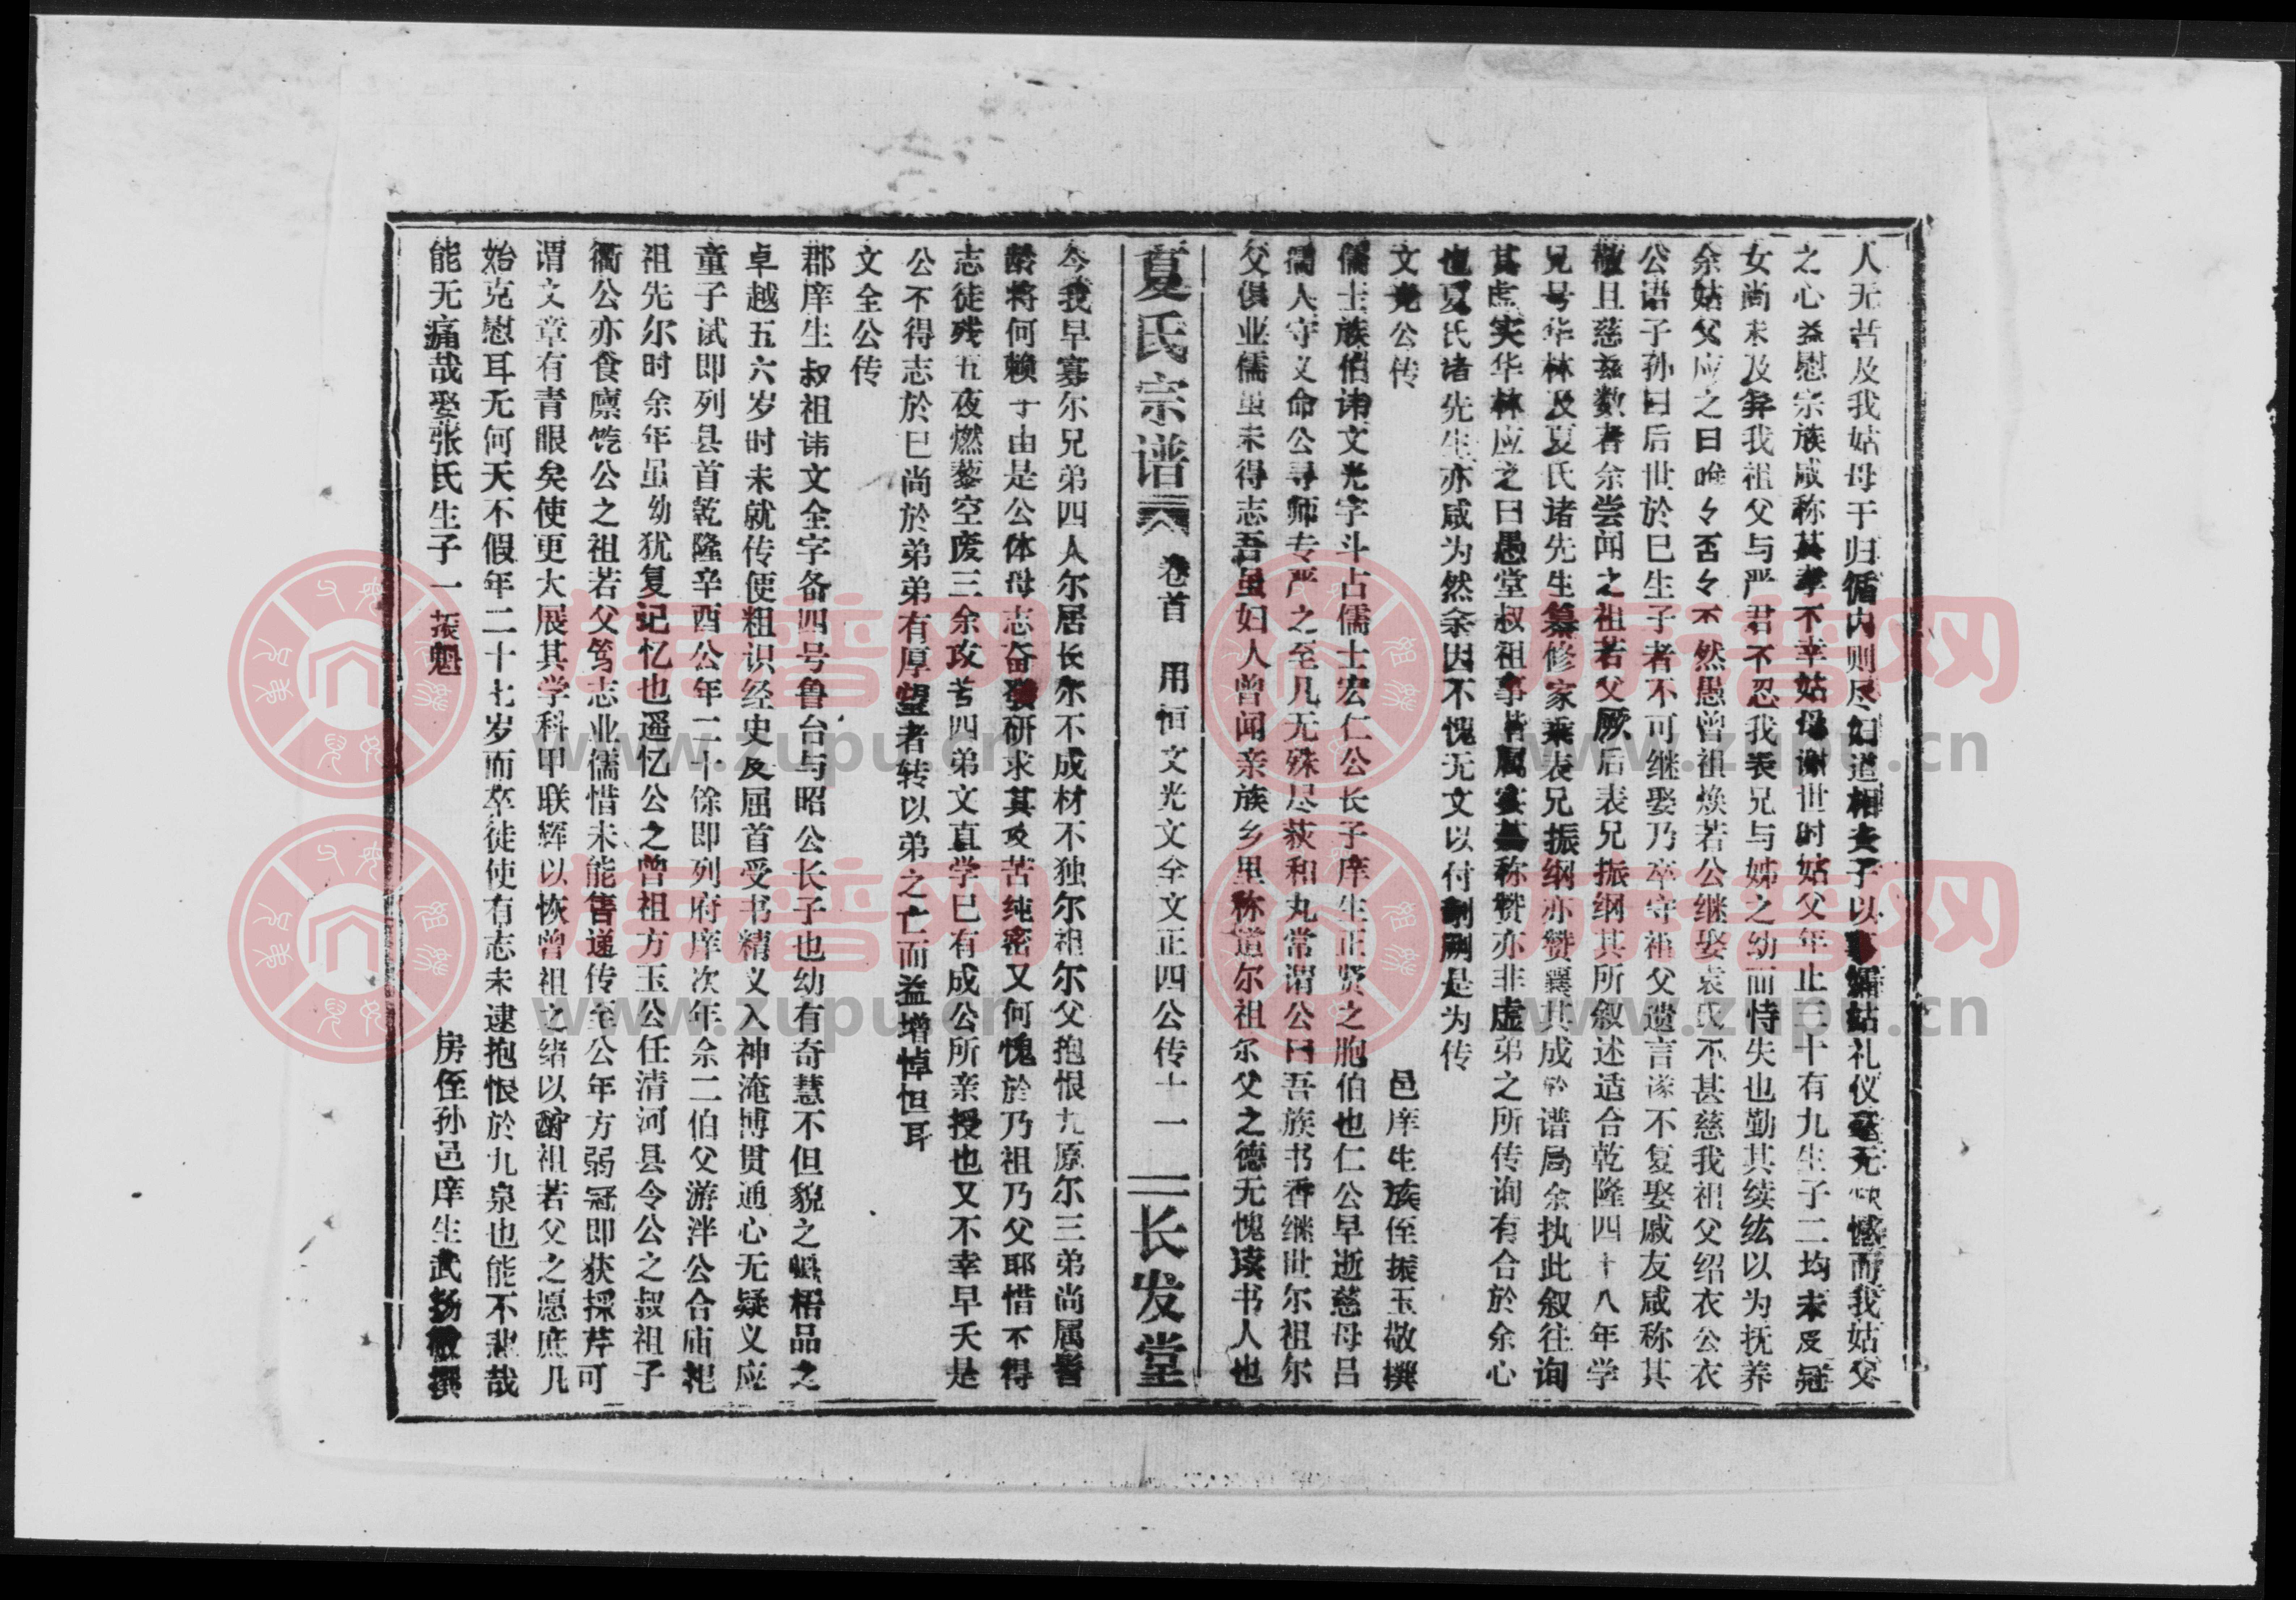 人无言及我姑母于归循内则尽妇道相夫子以孀姑礼仪毫无憾而我姑父
之心益慰宗族咸称其孝不幸姑母谢世时姑父年止三十有九生子二均未及冠
女尚未及笄我祖父与严君不忍我表兄与姊之幼而恃失也勤其续纮以为抚养
余姑父应之曰唯々否々不然愚曾祖焕若公继娶袁氏不甚慈我祖父绍衣公衣
公语子孙曰后世於巳生子者不可继娶乃卒守祖父遗言遂不复娶戚友咸称其
敬且慈兹数者余尝闻之祖若父厥后表兄振纲其所叙述适合乾隆四十八年学
兄号华林及夏氏诸先生纂修家乘表兄振纲亦赞襄其成於谱局余执此叙往询
其虚实华林应之曰愚堂叔祖事皆属实其称赞亦非虚弟之所传询有合於余心
也夏氏诸先生亦咸为然余因不愧无文以付剞劂是为传
文光公传
邑庠生族侄振玉敬撰
儒士族伯讳文光字斗占儒士宏仁公长子庠生正贤之胞伯也仁公早逝慈母吕
孺人守义命公寻师专严之至凡无殊尽荻和丸常谓公曰吾族书香继世尔祖尔
父俱业儒虽未得志吾虽妇人曾闻亲族乡里称道尔祖尔父之德无愧读书人也
夏氏宗谱 卷首 用恒文光文全文正四公传十一 长发堂
今我早寡尔兄弟四人尔居长尔不成材不独尔祖尔父抱恨九原尔三弟尚属髫
龄将何赖于由是公体母志奋发研求其攻苦纯密又何愧於乃祖乃父耶惜不得
志徒残五夜燃藜空废三余攻苦四弟文直学巳有成公所亲授也又不幸早夭是
公不得志於巳尚於弟弟有厚望者转以弟之亡而益增悼怛耳
文全公传
郡庠生叔祖讳文全字备四号鲁台与昭公长子也幼有奇慧不但貌之魁梧品之
卓越五六岁时未就传便粗识经史及屈首受书精义入神淹博贯通心无疑义应
童子试即列县首乾隆辛酉公年二十馀即列府庠次年余二伯父游泮公合庙祀
祖先尔时余年虽幼犹复记忆也遥忆公之曾祖方玉公任清河县令公之叔祖子
衢公亦食廪饩公之祖若父笃志业儒惜未能售递传至公年方弱冠即获採芹可
谓文章有青眼矣使更大展其学科甲联辉以恢曾祖之绪以酧祖若父之愿庶几
始克慰耳无何天不假年二十七岁而卒徒使有志未逮抱恨於九泉也能不悲哉
能无痛哉娶张氏生子一振魁
房侄孙邑庠生武扬敬撰
族谱网
www.zupu.cn
族谱网
www.zupu.cn
族谱网
www.zupu.cn
族谱网
www.zupu.cn